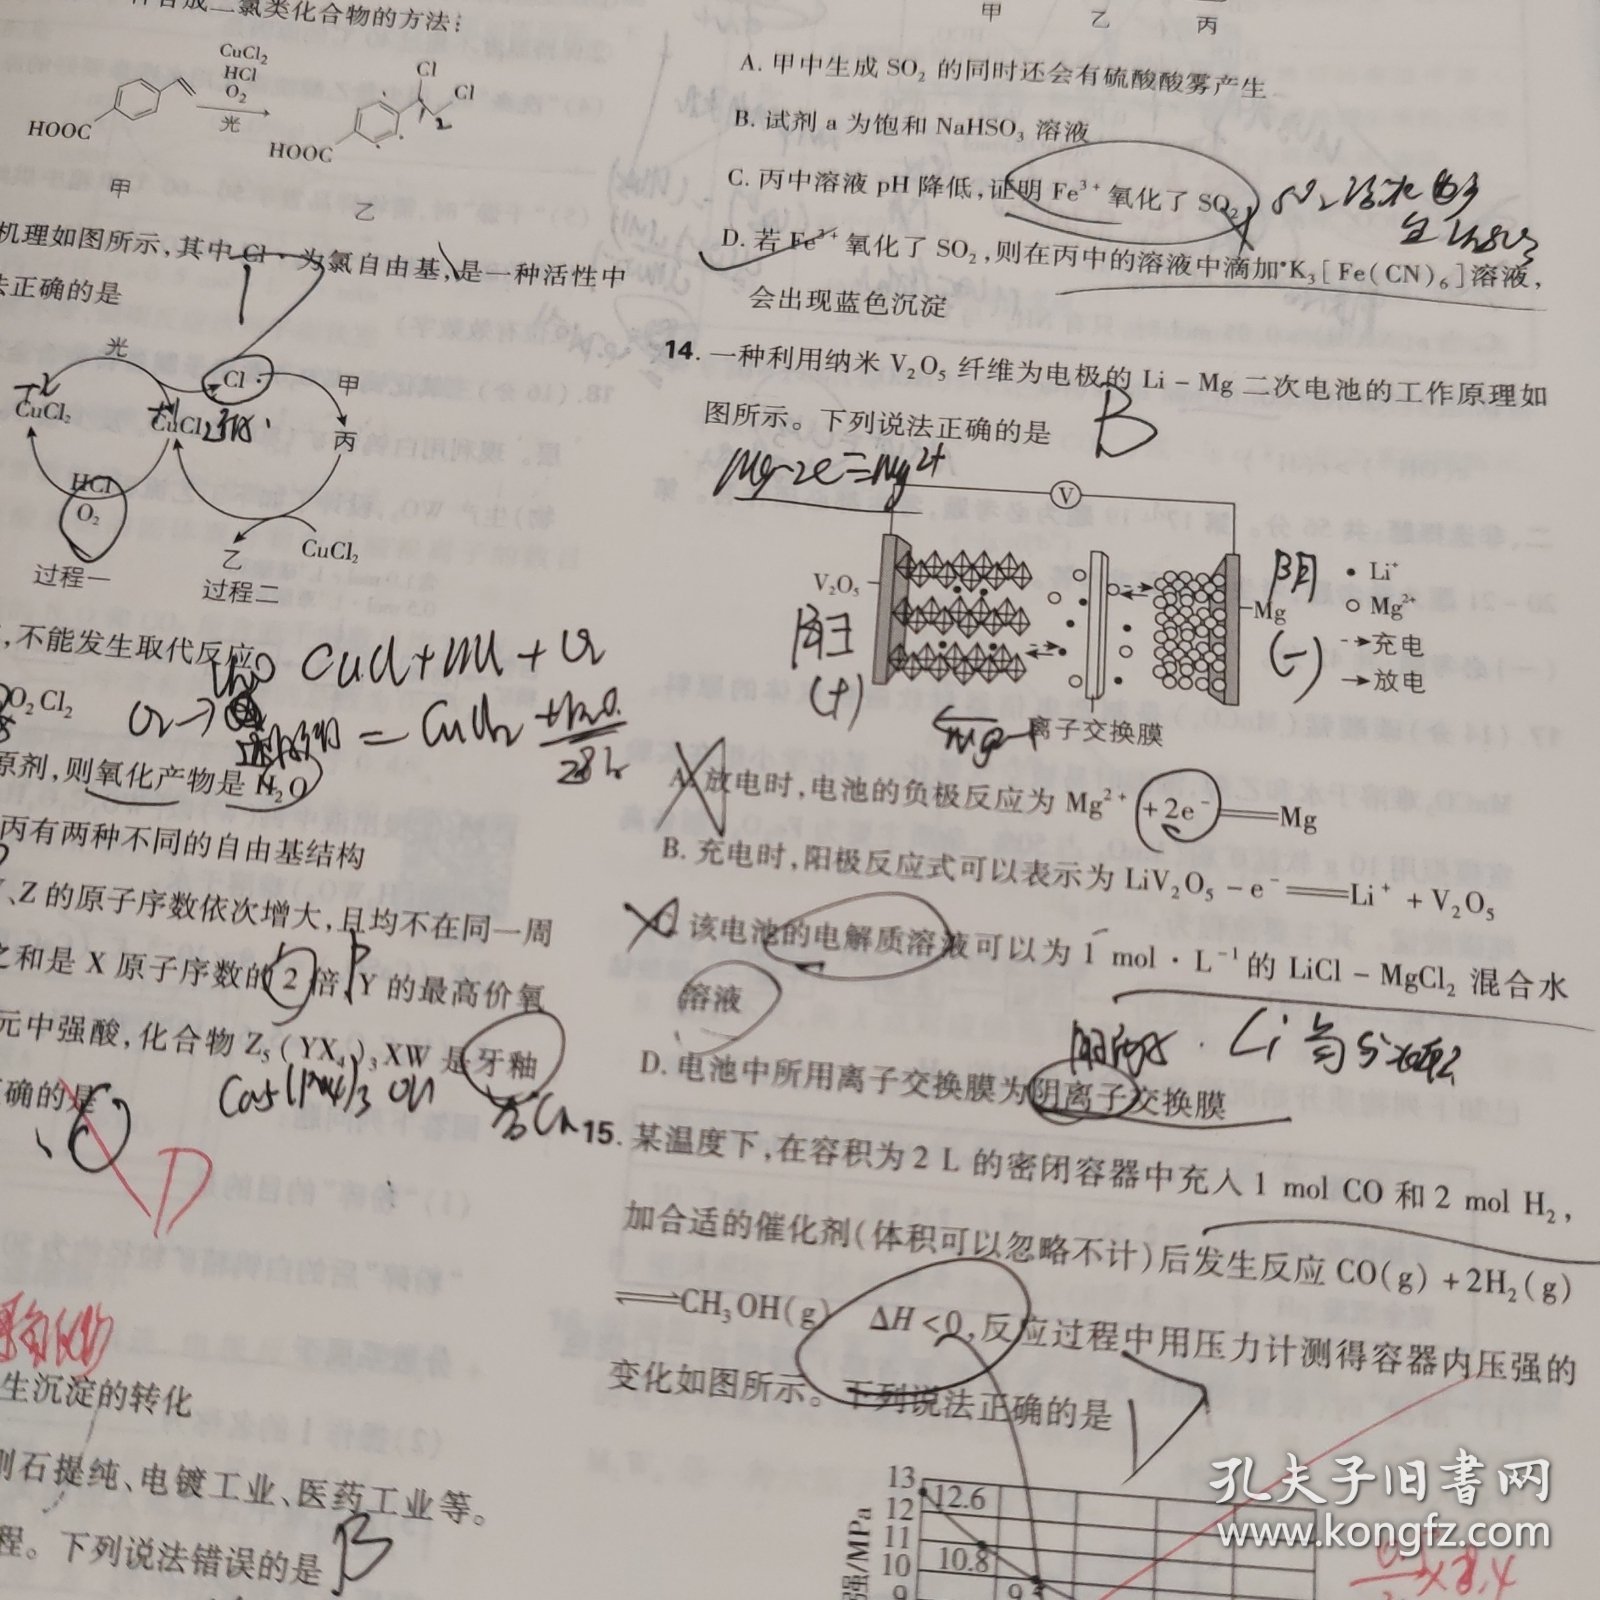 合成二氯类化合物的方法：
CuCl₂
HCl
O₂
光
HOOC
甲
Cl
Cl
HOOC
乙
机理如图所示，其中Cl·为氯自由基，是一种活性中
正确的是
光
Cl·
甲
CuCl₂
CuCl
丙
HCl
O₂
乙
CuCl₂
过程一
过程二
，不能发生取代反应
O₂Cl₂
原剂，则氧化产物是H₂O
丙有两种不同的自由基结构
、Z的原子序数依次增大，且均不在同一周
之和是X原子序数的2倍，Y的最高价氧
元中强酸，化合物Z₅(YX₄)₃XW是牙釉
确的是
Ca₅(PO₄)₃OH
D
生沉淀的转化
刚石提纯、电镀工业、医药工业等。
程。下列说法错误的是
B
甲
乙
丙
A. 甲中生成SO₂的同时还会有硫酸酸雾产生
B. 试剂a为饱和NaHSO₃溶液
C. 丙中溶液pH降低，证明Fe³⁺氧化了SO₂
D. 若Fe³⁺氧化了SO₂，则在丙中的溶液中滴加K₃[Fe(CN)₆]溶液，
会出现蓝色沉淀
14. 一种利用纳米V₂O₅纤维为电极的Li-Mg二次电池的工作原理如
图所示。下列说法正确的是
B
Mg-2e=Mg²⁺
V
V₂O₅
阳
(+)
Mg
阴
(-)
Li⁺
Mg²⁺
充电
放电
离子交换膜
A. 放电时，电池的负极反应为Mg²⁺+2e⁻══Mg
B. 充电时，阳极反应式可以表示为LiV₂O₅-e⁻══Li⁺+V₂O₅
C. 该电池的电解质溶液可以为1 mol·L⁻¹的LiCl-MgCl₂混合水
溶液
D. 电池中所用离子交换膜为阴离子交换膜
15. 某温度下，在容积为2 L的密闭容器中充入1 mol CO和2 mol H₂，
加合适的催化剂(体积可以忽略不计)后发生反应CO(g)+2H₂(g)
⇌CH₃OH(g) ΔH<0，反应过程中用压力计测得容器内压强的
变化如图所示。下列说法正确的是
13
12
11
10
9
12.6
10.8
9.
强/MPa
孔夫子旧书网
www.kongfz.com